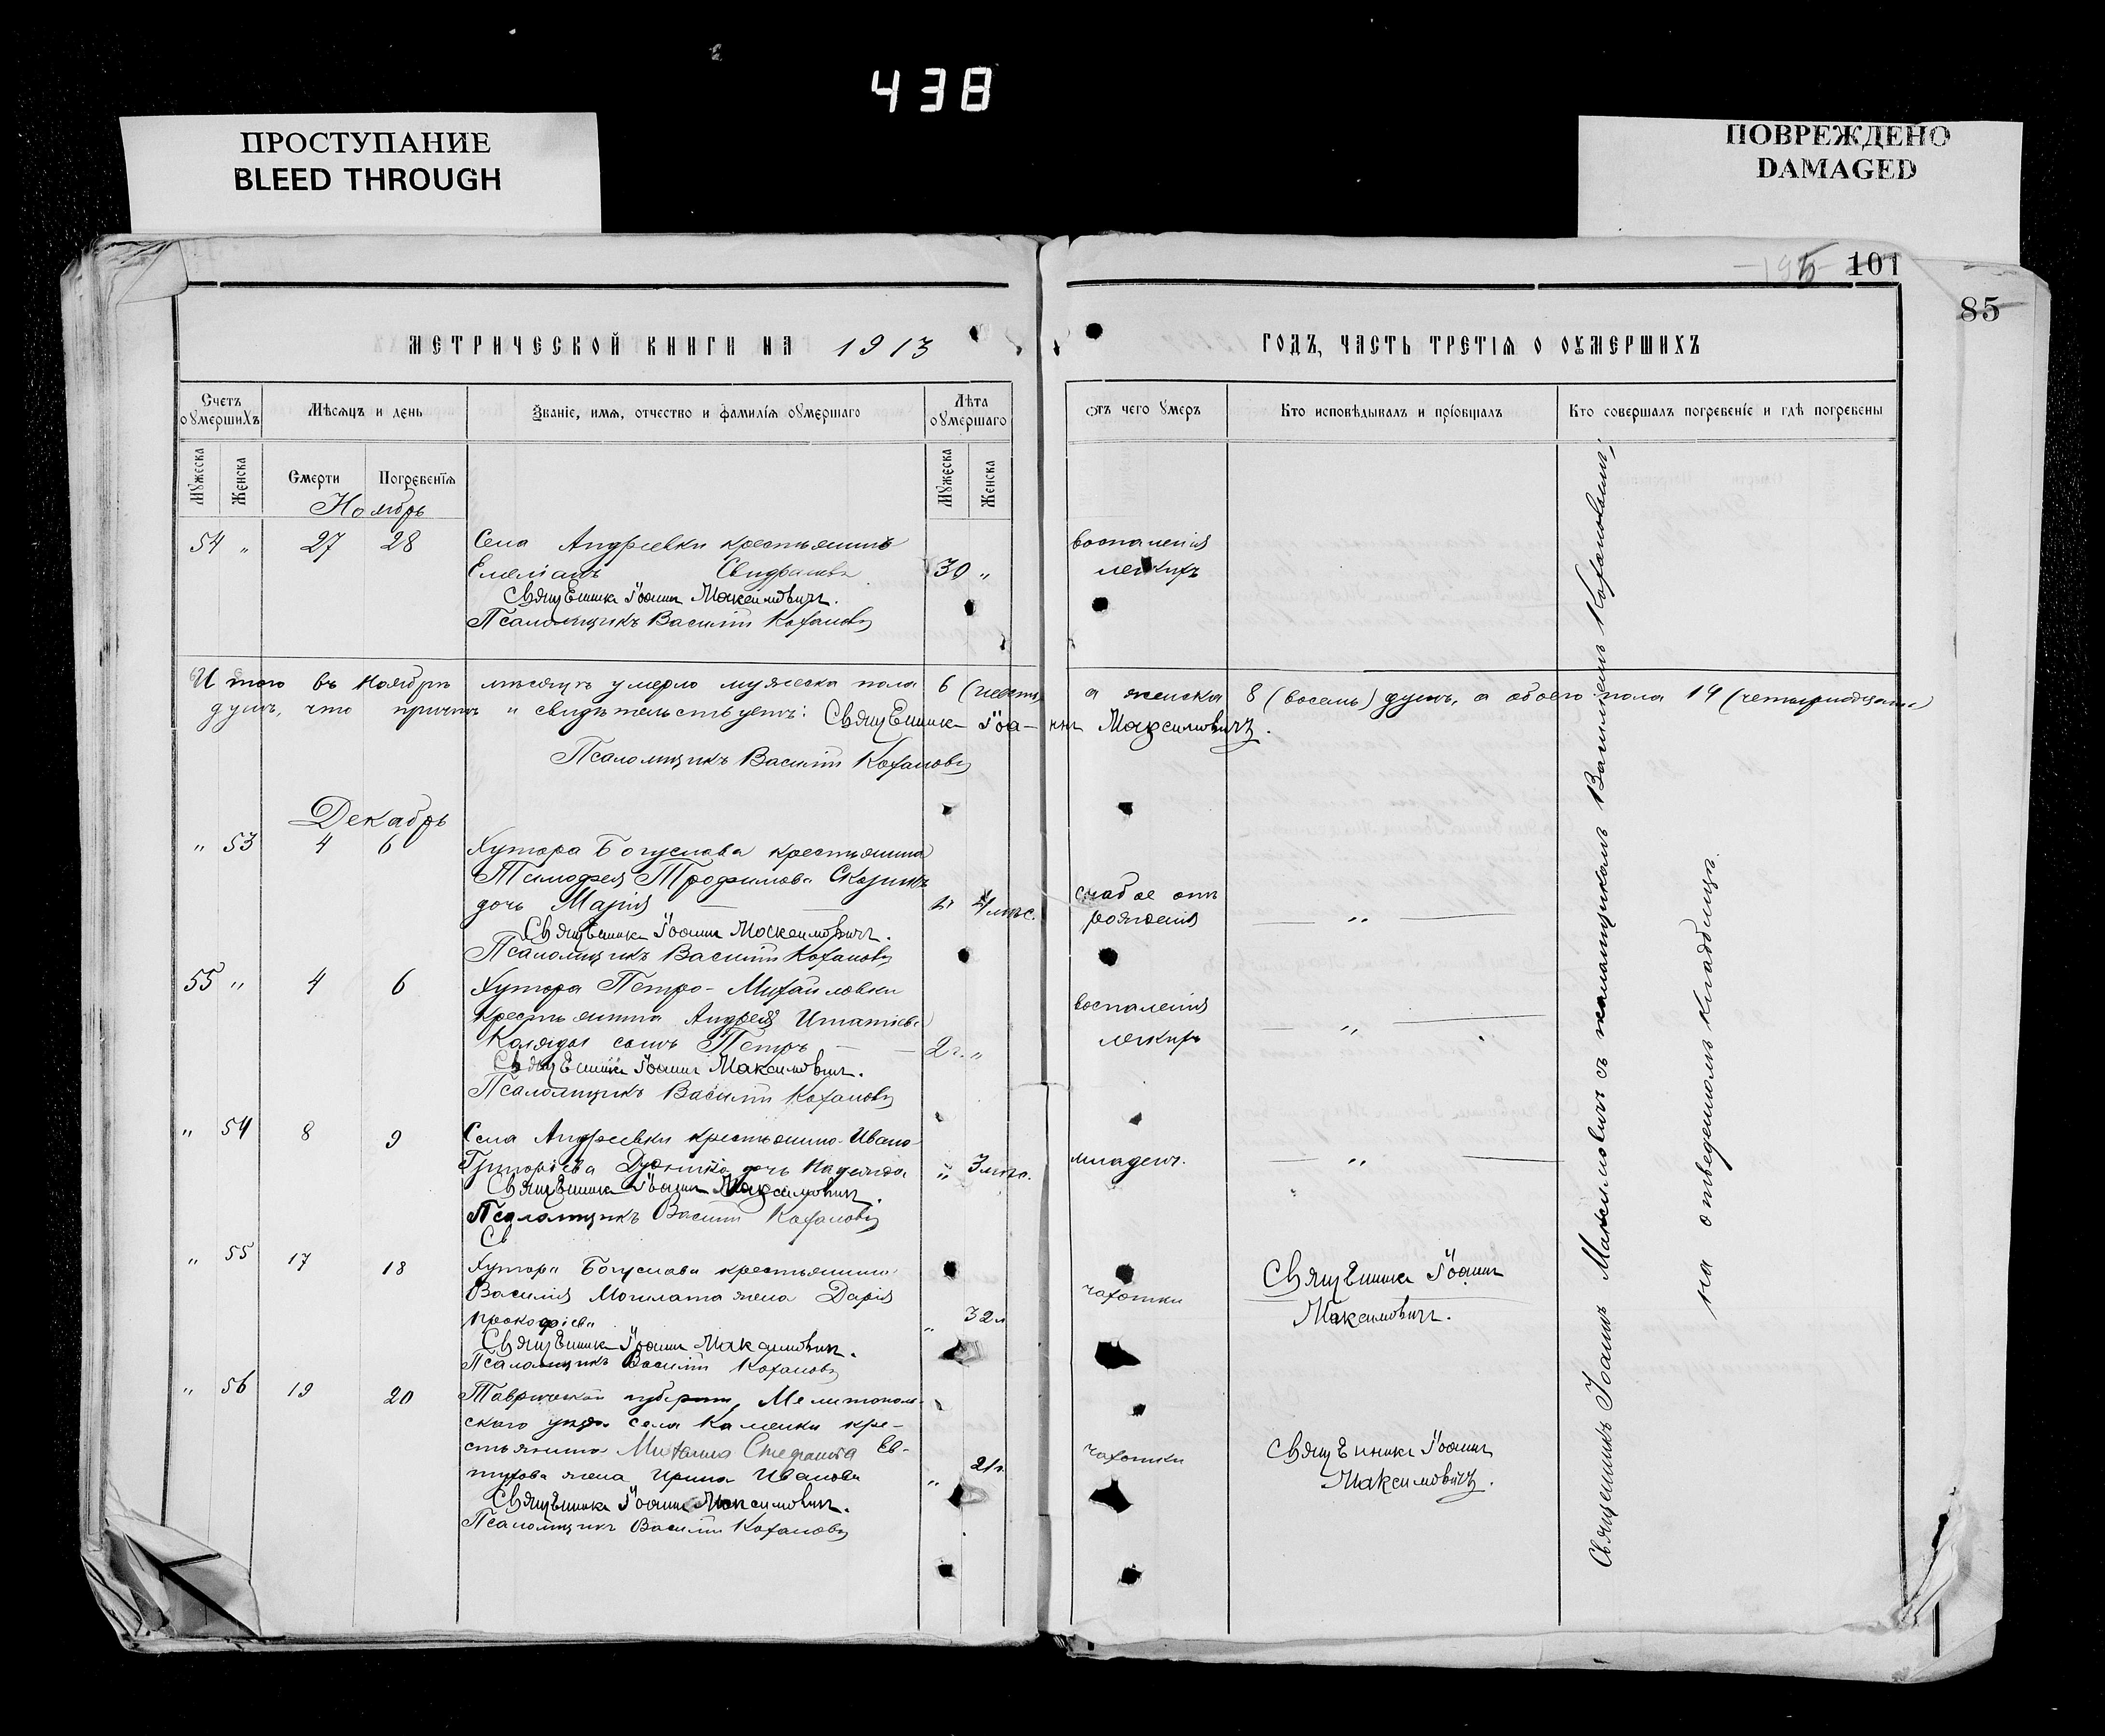 438
ПРОСТУПАНИЕ
BLEED THROUGH
ПОВРЕЖДЕНО
DAMAGED
101
85
МЕТРИЧЕСКОЙ КНИГИ НА 1913
ГОДЪ, ЧАСТЬ ТРЕТІЯ О ОУМЕРШИХЪ
Счетъ оумершихъ
Мѣсяцъ и день
Званіе, имя, отчество и фамилія оумершаго
Лѣта оумершаго
Отъ чего умеръ
Кто исповѣдывалъ и пріобщалъ
Кто совершалъ погребеніе и гдѣ погребены
Мужеска Женска Смерти Погребенія Мужеска Женска
Ноябрь
54 " 27 28 Села Андреевки крестьянинъ воспаленія
Емеліанъ 30 " легкихъ
Священникъ Іоаннъ Максимовичъ.
Псаломщикъ Василій Кохановъ
Итого въ Ноябрѣ мѣсяцѣ умерло мужеска пола 6 (шесть) а женска 8 (восемь) душъ, а обоего пола 14 (четырнадцать)
душъ, что причтъ и свидѣтельствуетъ: Священникъ Іоаннъ Максимовичъ.
Псаломщикъ Василій Кохановъ
Декабрь
" 53 4 6 Хутора Богуслава крестьянина
Тимофея Трофимова слабое отъ
дочь Марія 4 мѣс. рожденія "
Священникъ Іоаннъ Максимовичъ.
Псаломщикъ Василій Кохановъ
55 " 4 6 Хутора Петро-Михайловки воспаленія
крестьянина Андрея Игнатіева
Коляды сынъ Петръ 2 г. " легкихъ "
Священникъ Іоаннъ Максимовичъ.
Псаломщикъ Василій Кохановъ
" 54 8 9 Села Андреевки крестьянина Ивана
Григоріева дочь Надежда " 3 младенч. "
Священникъ Іоаннъ Максимовичъ.
Псаломщикъ Василій Кохановъ
Св
" 55 17 18 Хутора Богуслава крестьянина Священникъ Іоаннъ
Василія Могилата жена Дарія чахотки Максимовичъ.
Прокофіева " 32 л
Священникъ Іоаннъ Максимовичъ.
Псаломщикъ Василій Кохановъ
" 56 19 20 Таврической губерніи, Мелитополь-
скаго уѣзда села Каменки кре-
стьянина Михаила Стефанова Ев- чахотки Священникъ Іоаннъ
тухова жена Ирина Иванова " 21 г. Максимовичъ.
Священникъ Іоаннъ Максимовичъ.
Псаломщикъ Василій Кохановъ
Священникъ Іоаннъ Максимовичъ съ псаломщикомъ Василіемъ Кохановымъ,
на отведенномъ кладбищѣ.